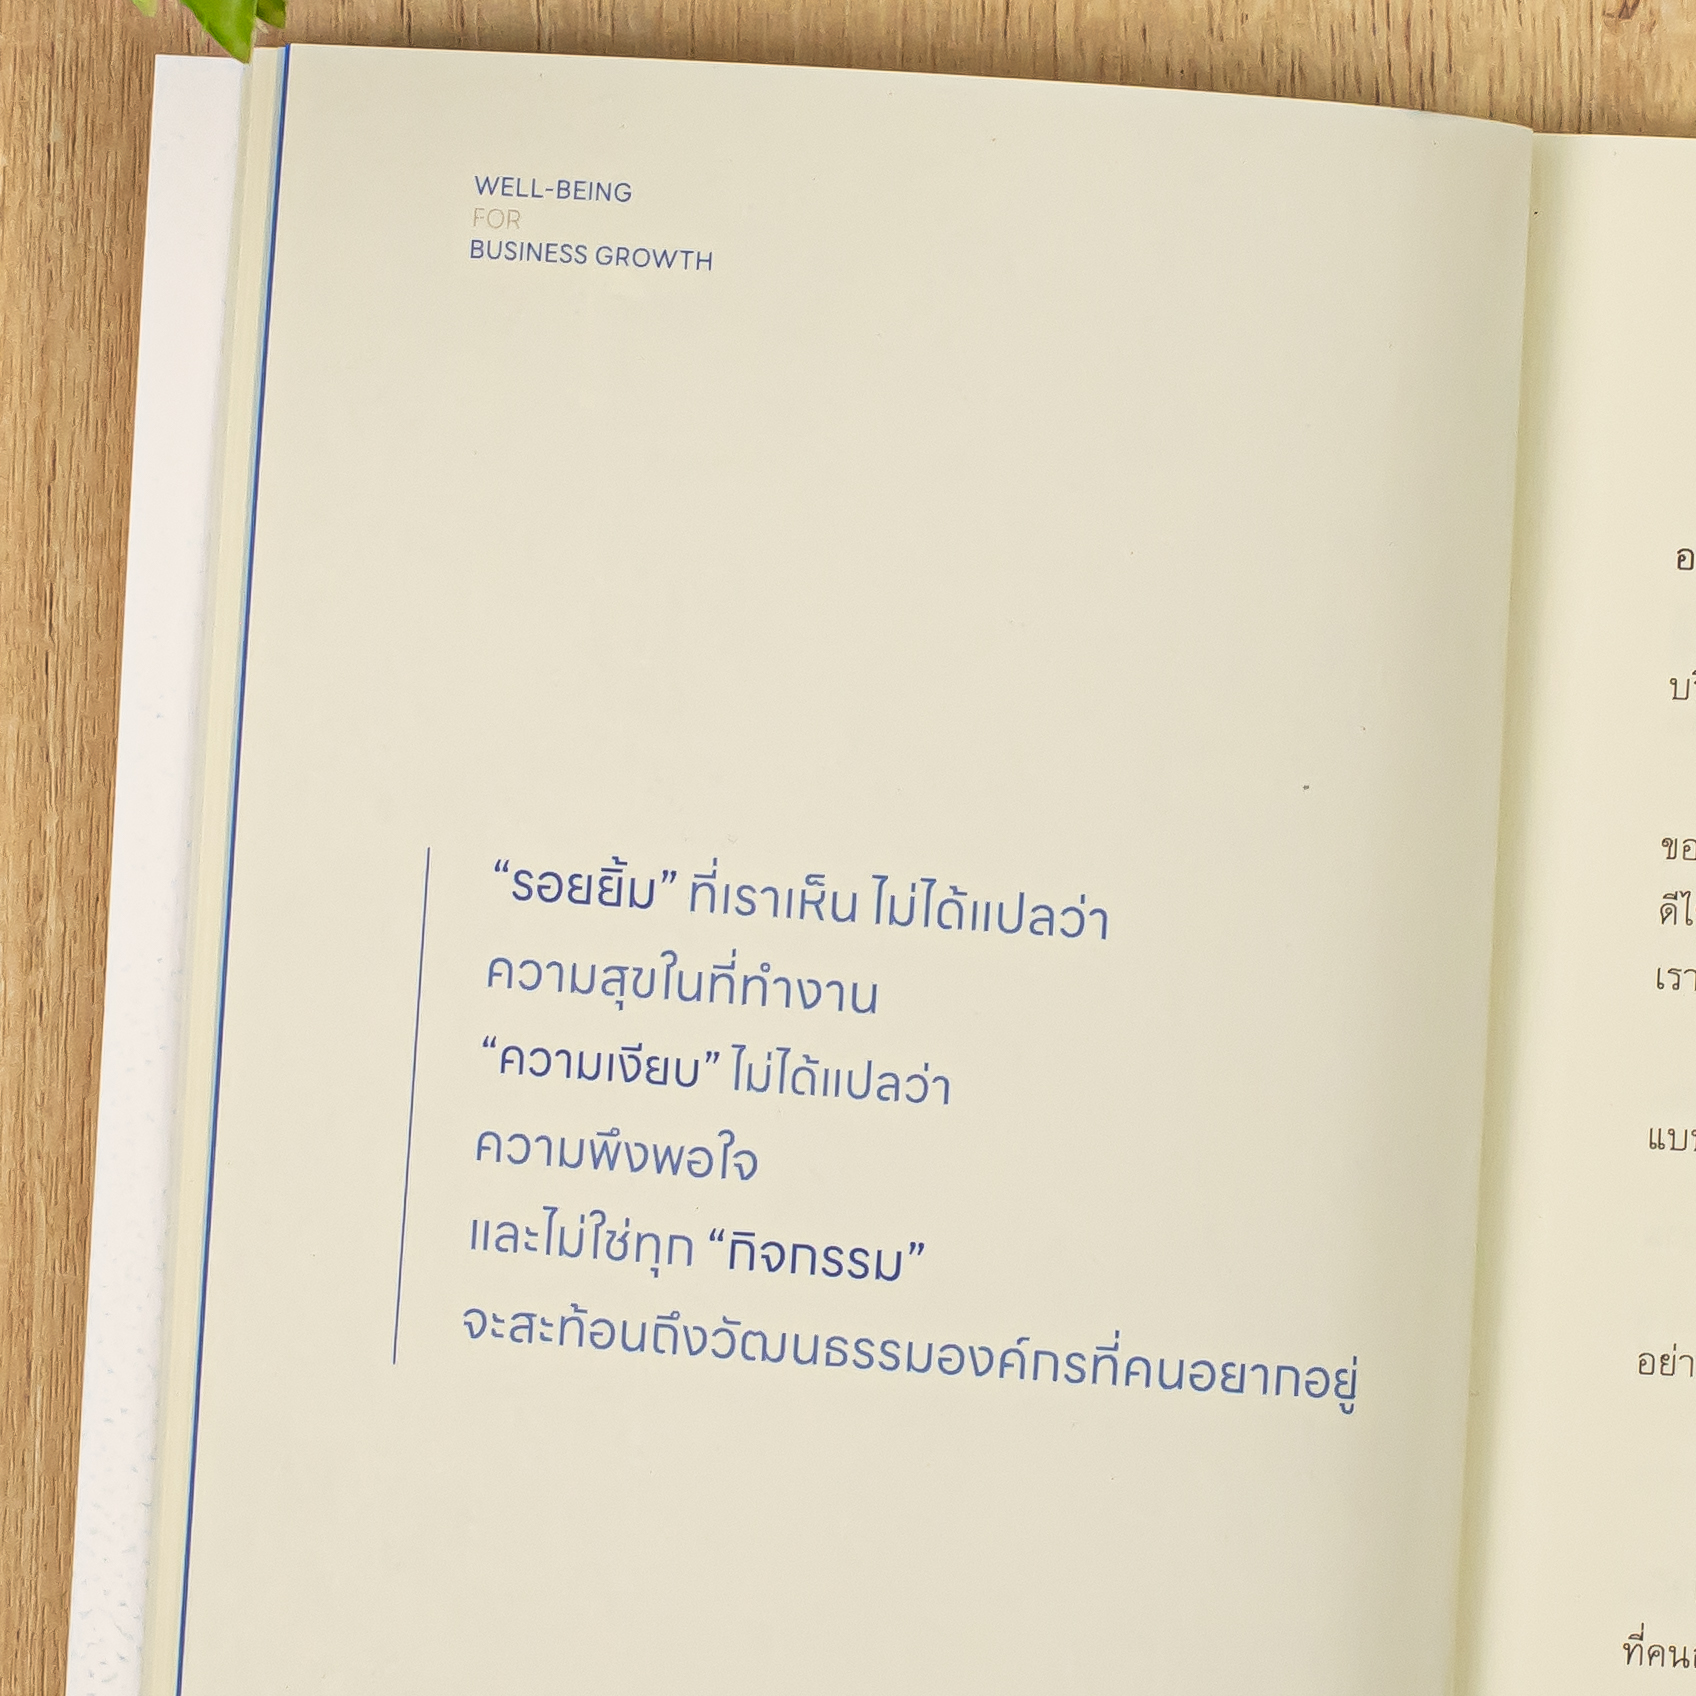 WELL-BEING
FOR
BUSINESS GROWTH
“รอยยิ้ม” ที่เราเห็น ไม่ได้แปลว่า
ความสุขในที่ทำงาน
“ความเงียบ” ไม่ได้แปลว่า
ความพึงพอใจ
และไม่ใช่ทุก “กิจกรรม”
จะสะท้อนถึงวัฒนธรรมองค์กรที่คนอยากอยู่
เรา